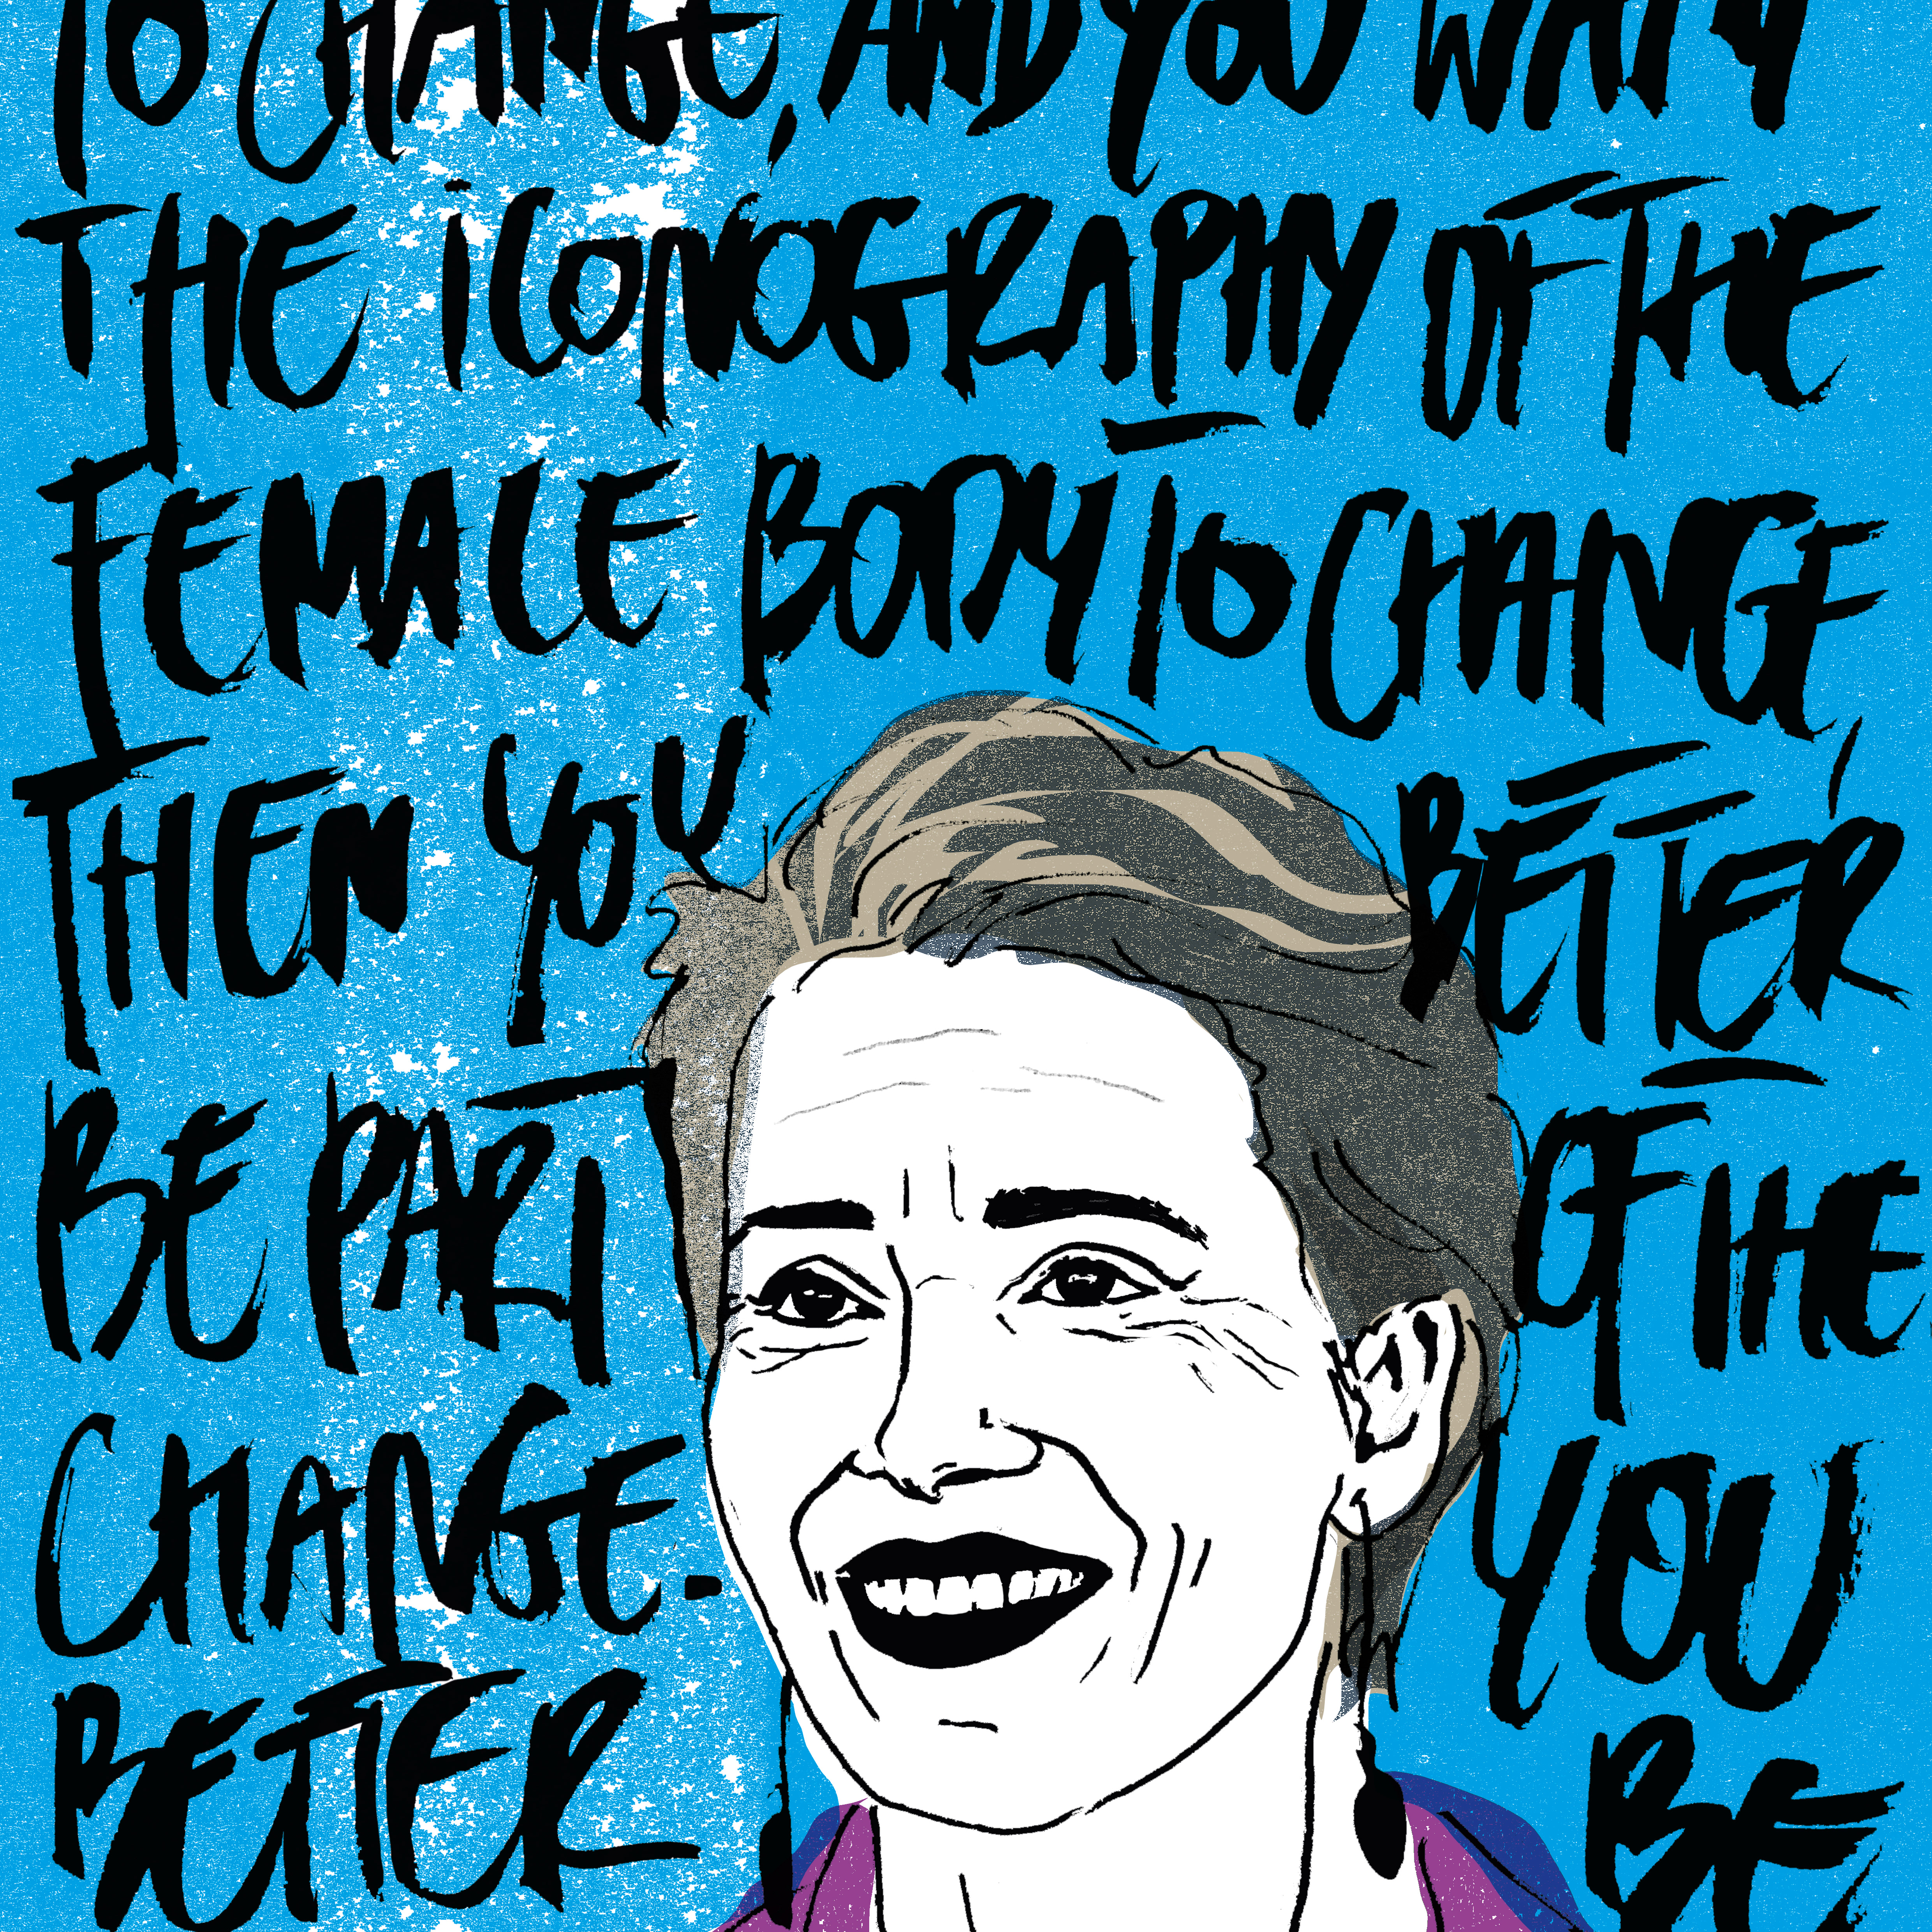 TO CHANGE, AND YOU WANT
THE ICONOGRAPHY OF THE
FEMALE BODY TO CHANGE,
THEN YOU BETTER
BE PART OF THE
CHANGE. YOU
BETTER BE